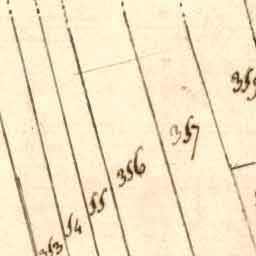 357
356
55
54
353